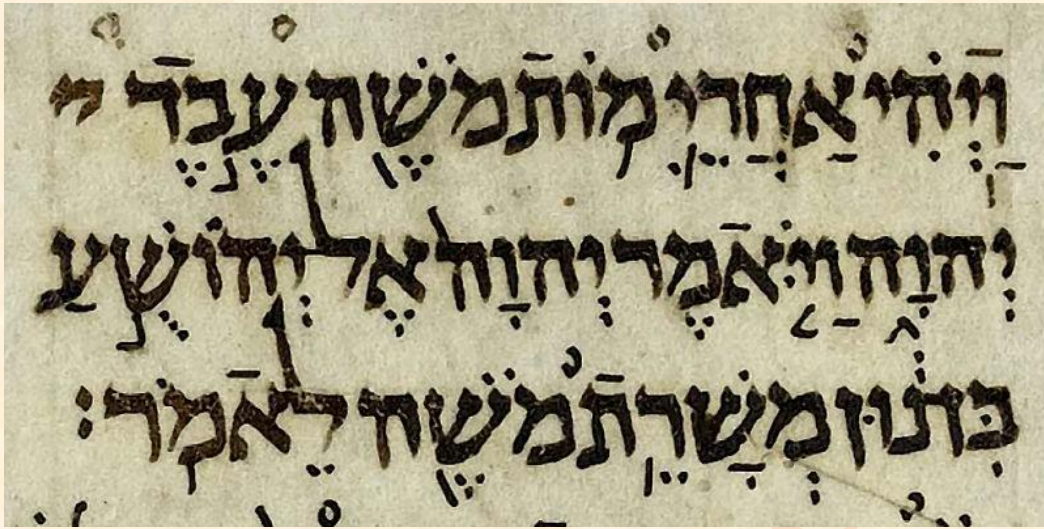 וַיְהִ֗י אַחֲרֵי֙ מ֣וֹת מֹשֶׁ֖ה עֶ֣בֶד י
יְהוָ֑ה וַיֹּ֤אמֶר יְהוָה֙ אֶל יְהוֹשֻׁ֣עַ
בִּן נ֔וּן מְשָׁרֵ֥ת מֹשֶׁ֖ה לֵאמֹֽר׃